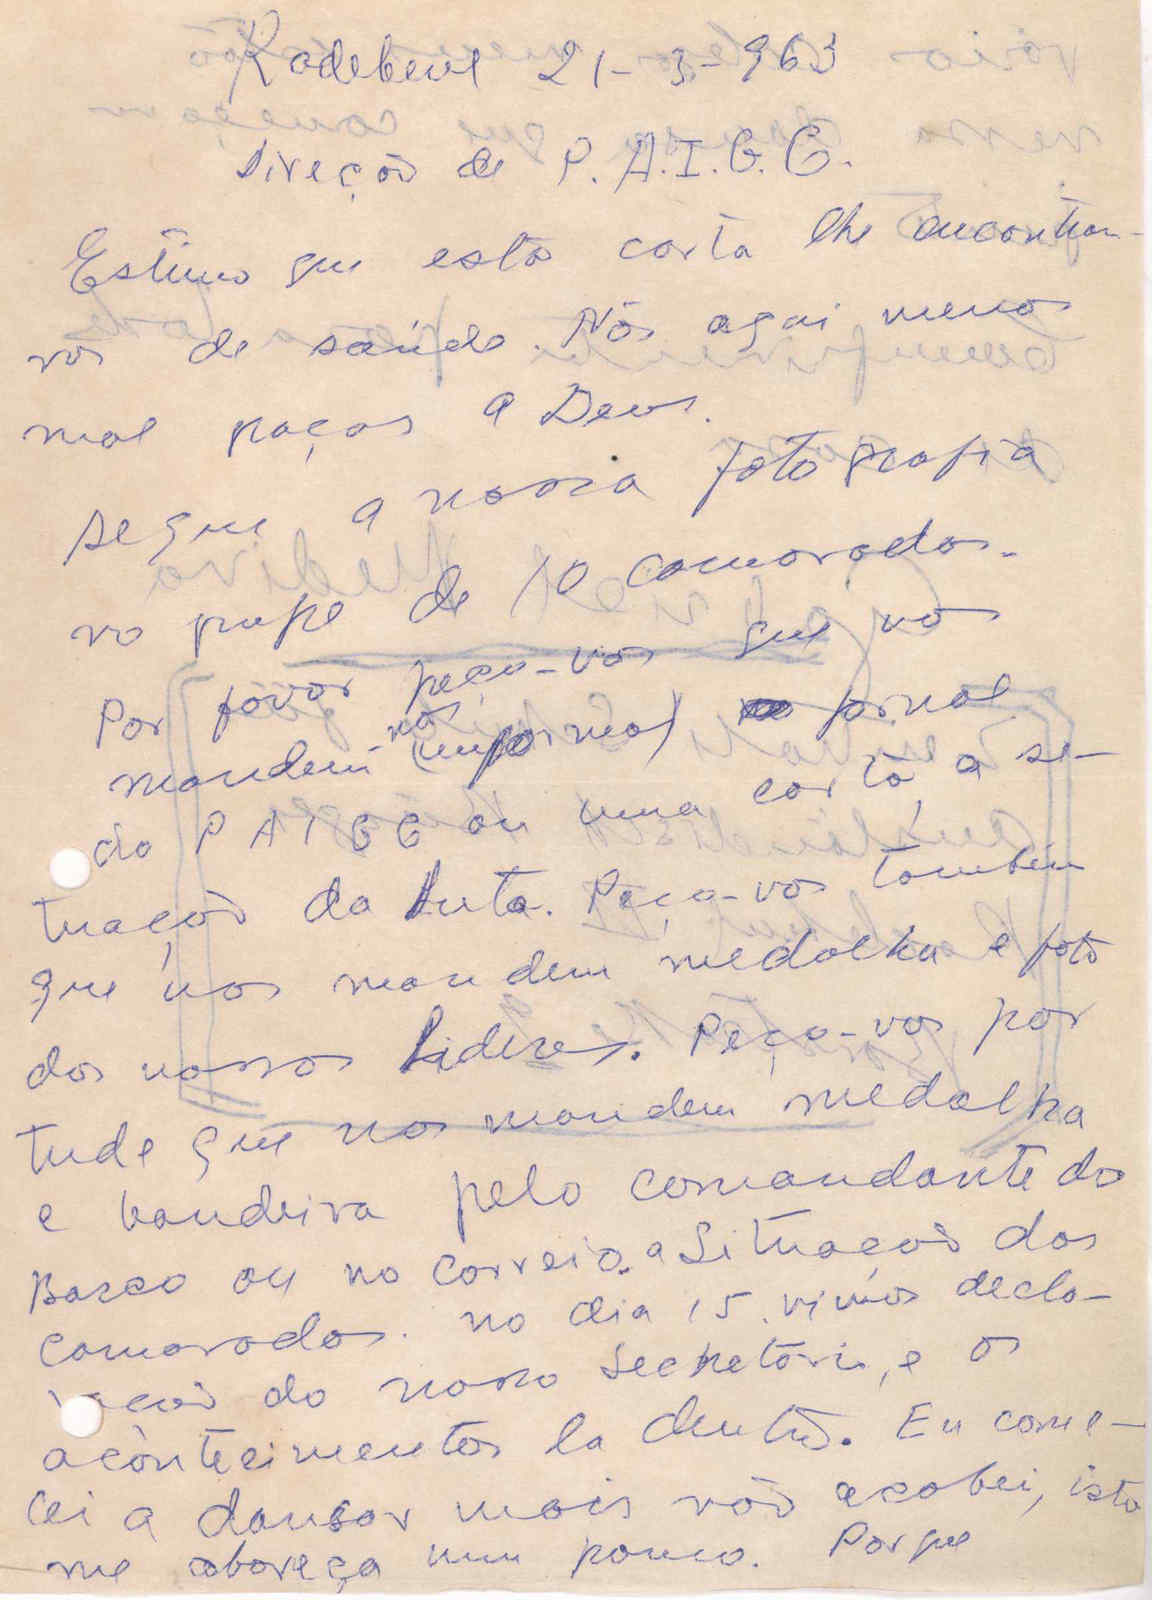 Radebeul 21-3-963
Direção de P.A.I.G.C.
Estimo que esta carta lhe encontran-
vos de saúde. Nós aqui menos
mal graças a Deus.
Segue a nossa fotografia
no grupe de 10 camaradas.
Por favor peço-vos que nos
mandem nos (informa) jornal
do PAIGC ou uma carta, a se-
tuação da Luta. Peço-vos também
que nos mandem medalha e foto
dos nossos Lideres. Peço-vos por
tude que nos mandem medalha
e bandeira pelo comandante do
Barco ou no correio. a Situação dos
camaradas. no dia 15. vimos decla-
ração do nosso Secretário, e os
acontecimentos la dentro. Eu come-
cei a dansar mais não acabei, isto
me aboreça um pouco. Porque